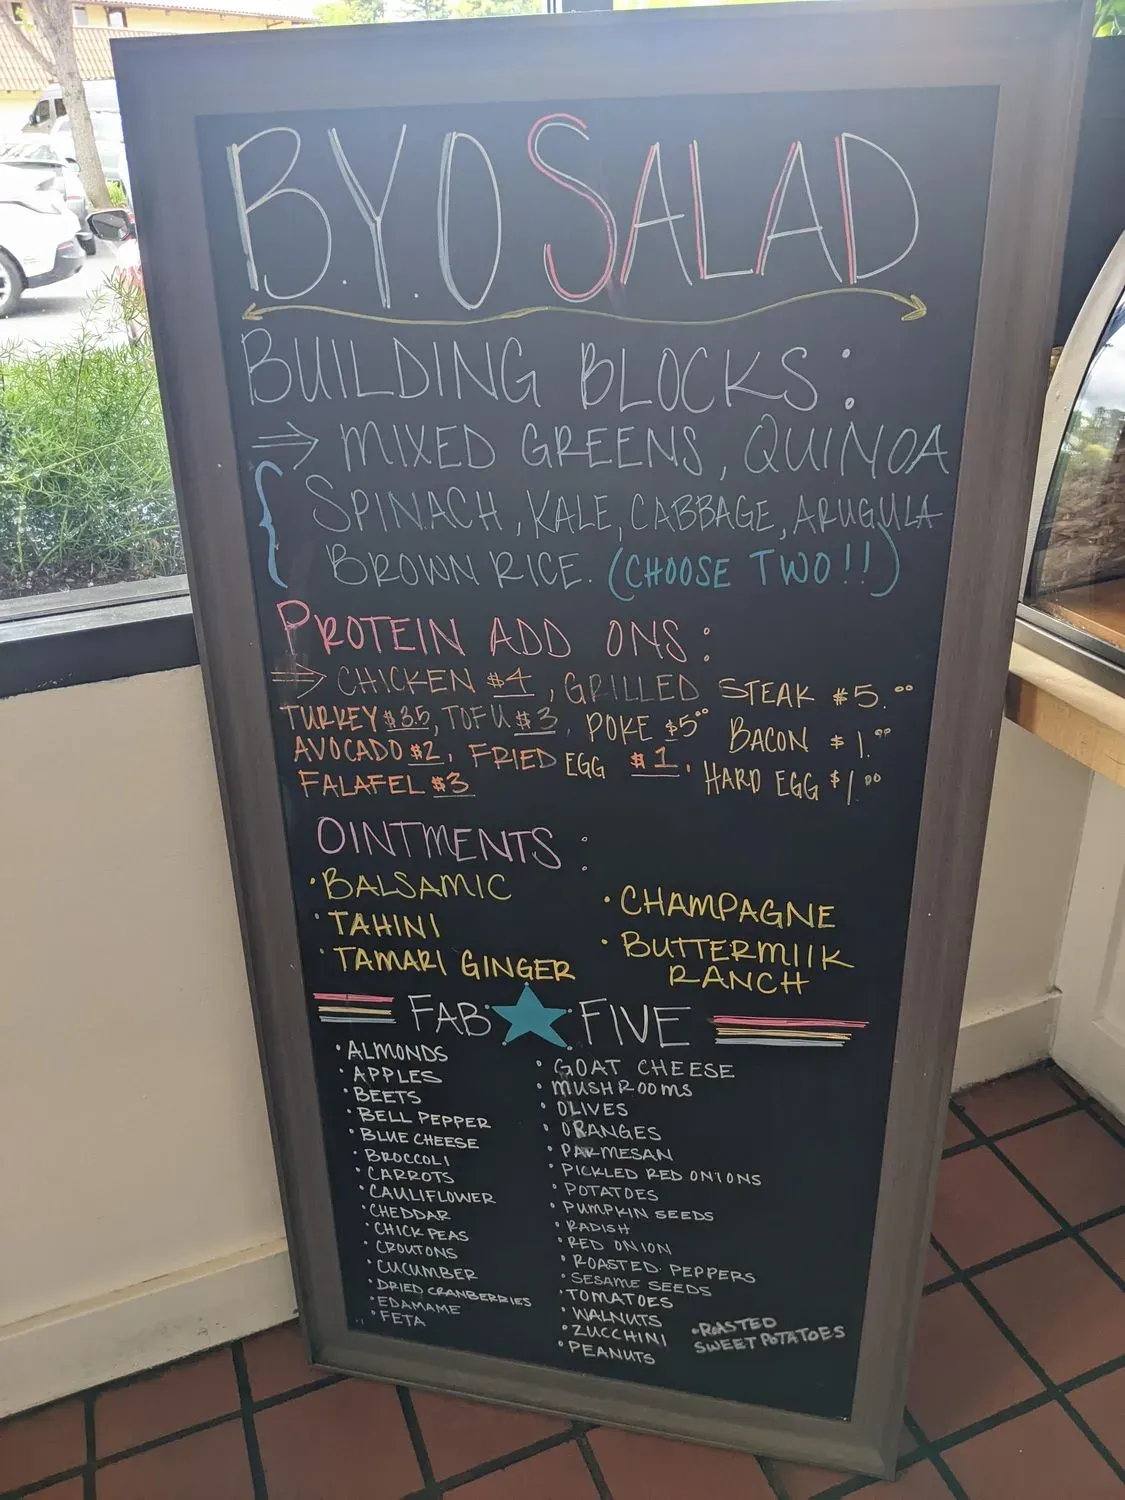 B.Y.O SALAD
BUILDING BLOCKS:
MIXED GREENS, QUINOA
SPINACH, KALE, CABBAGE, ARUGULA
BROWN RICE. (CHOOSE TWO!!)
PROTEIN ADD ONS:
CHICKEN $4, GRILLED STEAK $5.00
TURKEY $3.5, TOFU $3, POKE $5.00 BACON $1.00
AVOCADO $2, FRIED EGG $1. HARD EGG $1.00
FALAFEL $3
OINTMENTS:
• BALSAMIC
• TAHINI
• TAMARI GINGER
• CHAMPAGNE
• BUTTERMILK
RANCH
FAB FIVE
• ALMONDS
• APPLES
• BEETS
• BELL PEPPER
• BLUE CHEESE
• BROCCOLI
• CARROTS
• CAULIFLOWER
• CHEDDAR
• CHICK PEAS
• CROUTONS
• CUCUMBER
• DRIED CRANBERRIES
• EDAMAME
• FETA
• GOAT CHEESE
• MUSHROOMS
• OLIVES
• ORANGES
• PARMESAN
• PICKLED RED ONIONS
• POTATOES
• PUMPKIN SEEDS
• RADISH
• RED ONION
• ROASTED PEPPERS
• SESAME SEEDS
• TOMATOES
• WALNUTS
• ZUCCHINI
• PEANUTS
• ROASTED
SWEET POTATOES